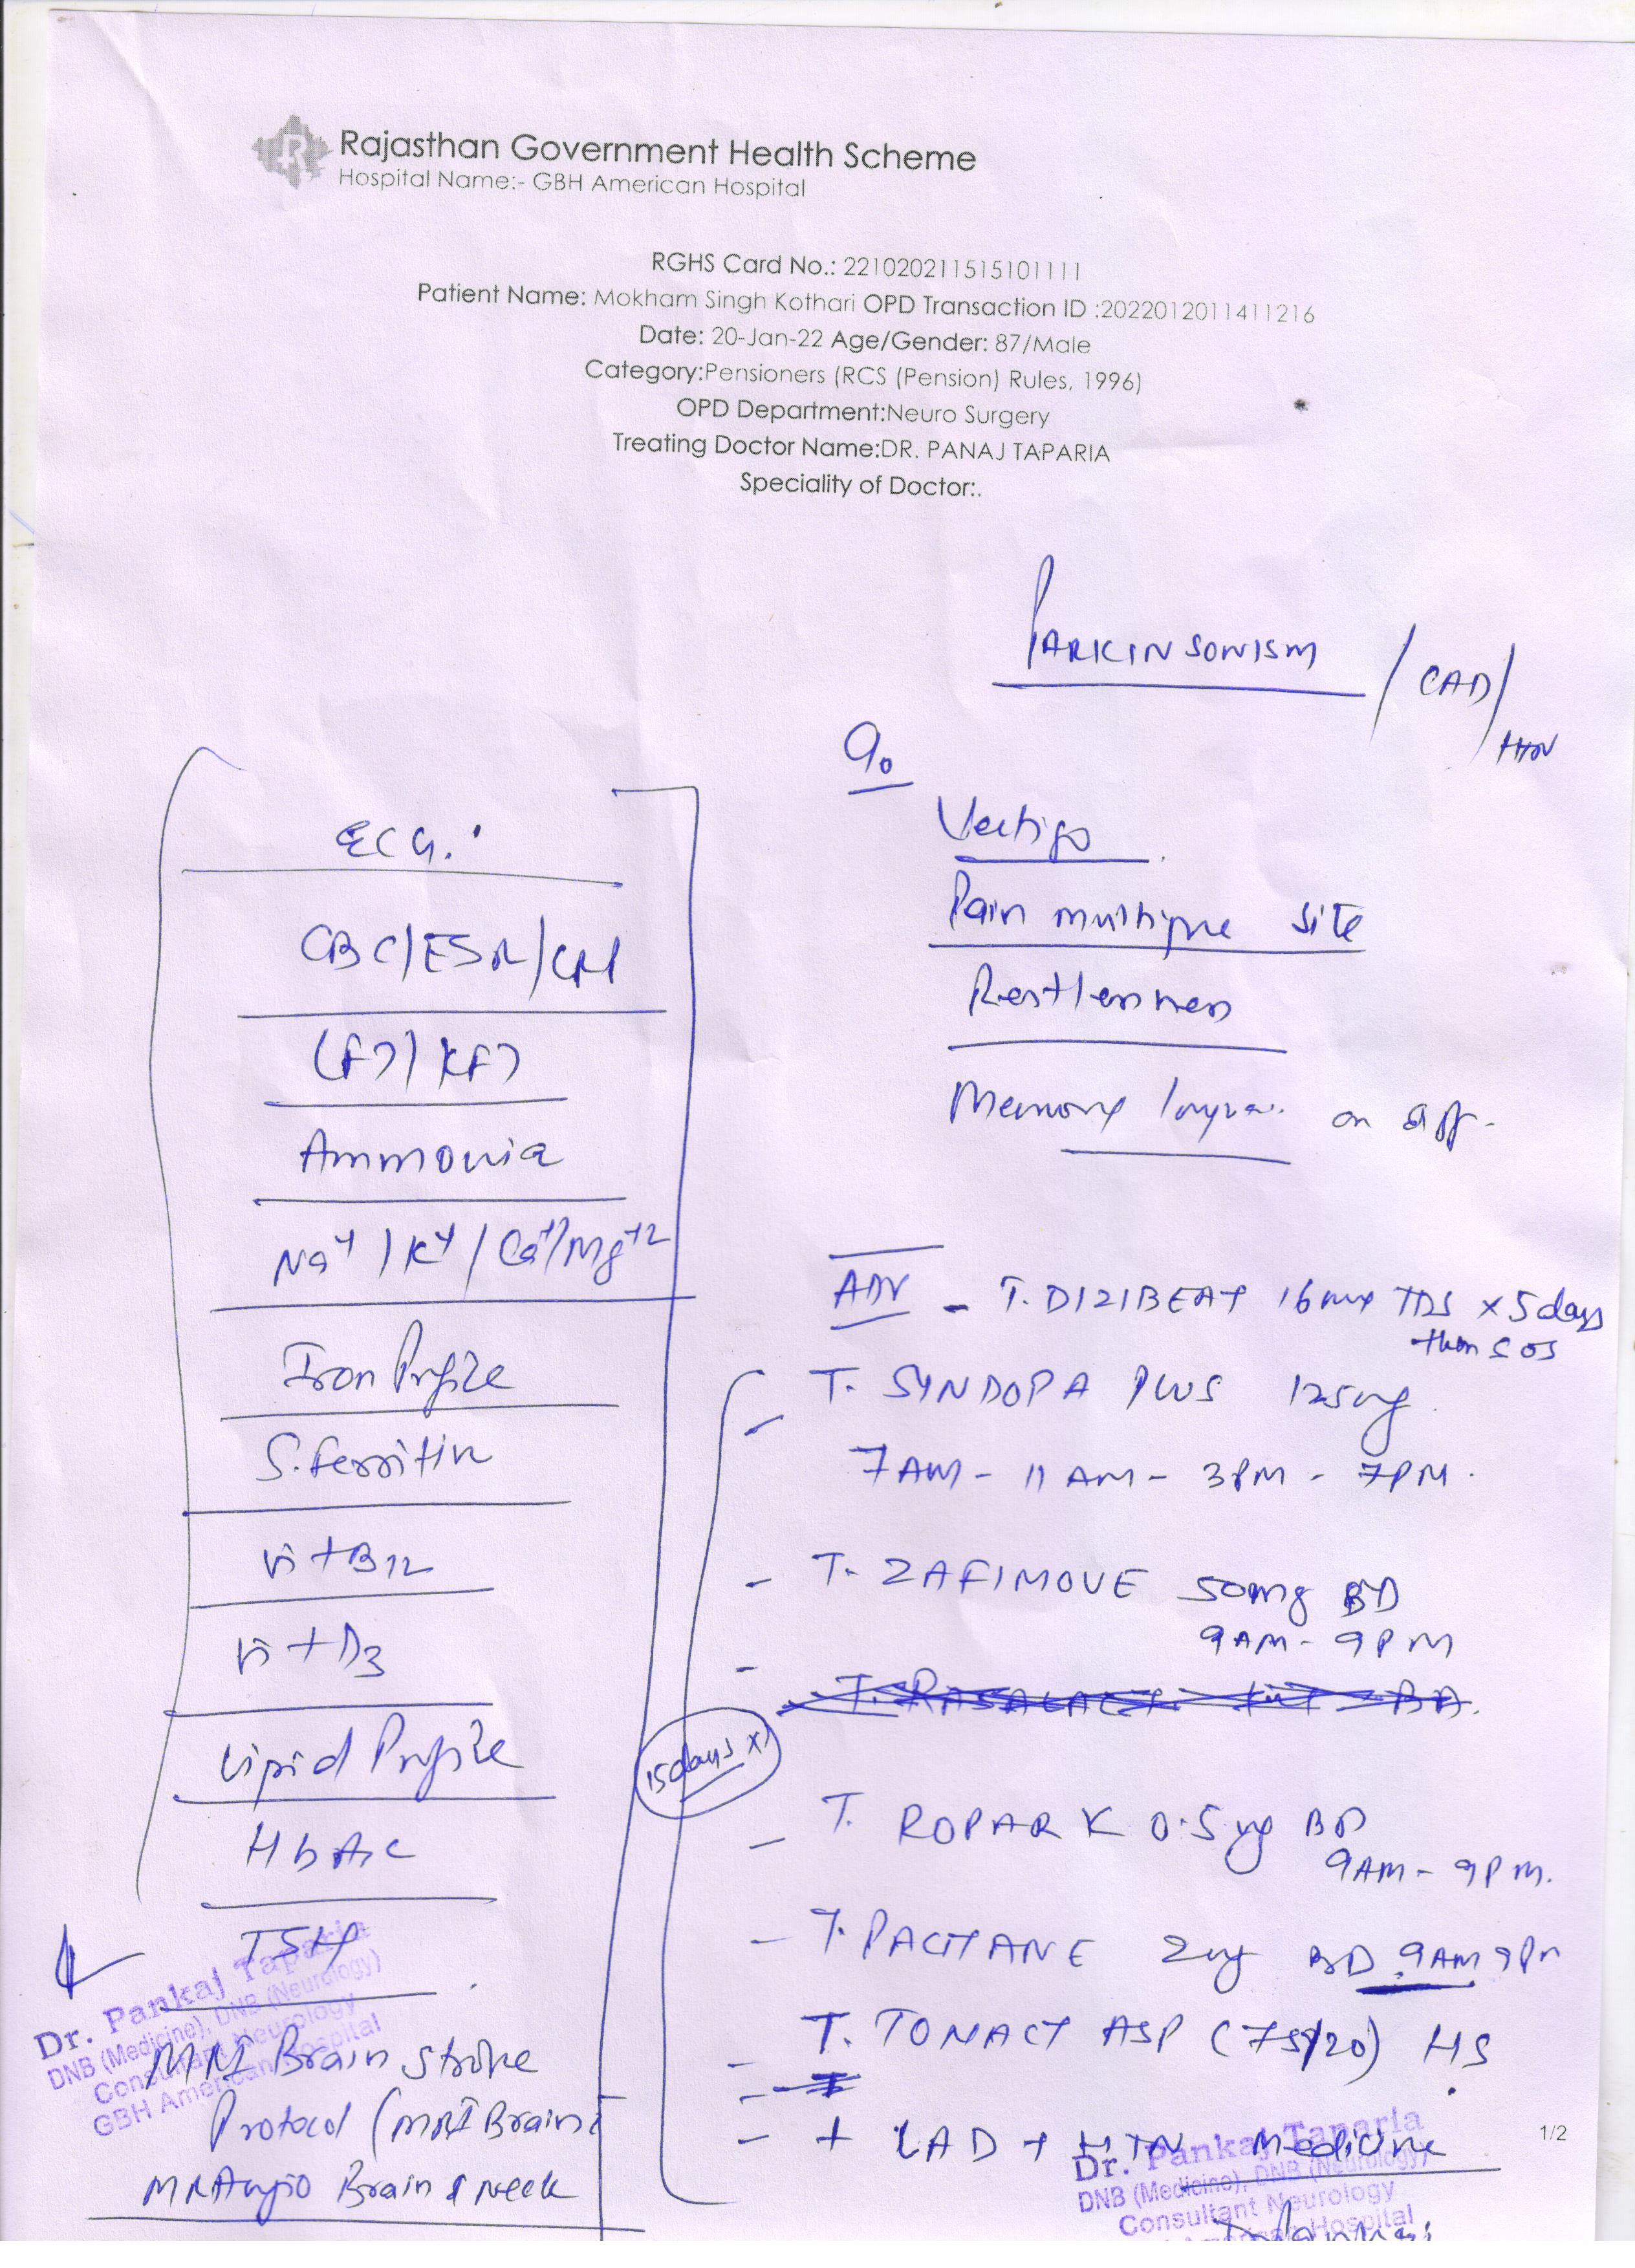 Rajasthan Government Health Scheme
Hospital Name:- GBH American Hospital
RGHS Card No.: 221020211515101111
Patient Name: Mokham Singh Kothari OPD Transaction ID :2022012011411216
Date: 20-Jan-22 Age/Gender: 87/Male
Category:Pensioners (RCS (Pension) Rules, 1996)
OPD Department:Neuro Surgery
Treating Doctor Name:DR. PANAJ TAPARIA
Speciality of Doctor:.
PARKINSONISM / CAD/
HTN
Vertigo
Pain multiple site
Restlessness
Memory on off-
ECG.
CBC/ESR/
LFT/KFT
Ammonia
Na+/K+/Ca+/Mg+2
Iron Profile
S.Ferritin
Vit B12
Vit D3
Lipid Profile
HbA1c
TSH
MRI Brain Stroke
Protocol (MRI Brain
MR Angio Brain & Neck
Dr. Pankaj Taparia
DNB (Medicine), DNB (Neurology)
Consultant Neurology
GBH American Hospital
ADV - T. DIZIBEAT 16mg TDS x 5 days
then SOS
T. SYNDOPA PLUS 125mg
7AM - 11AM - 3PM - 7PM.
- T. ZAFIMOVE 50mg BD
9AM - 9PM
15days x
- T. ROPARK 0.5mg BD
9AM - 9PM.
- T. PACITANE 2mg BD 9AM 9PM
- T. TONACT ASP (75/20) HS
- + CAD + HTN Medicine
1/2
Dr. Pankaj Taparia
DNB (Medicine), DNB (Neurology)
Consultant Neurology
Hospital